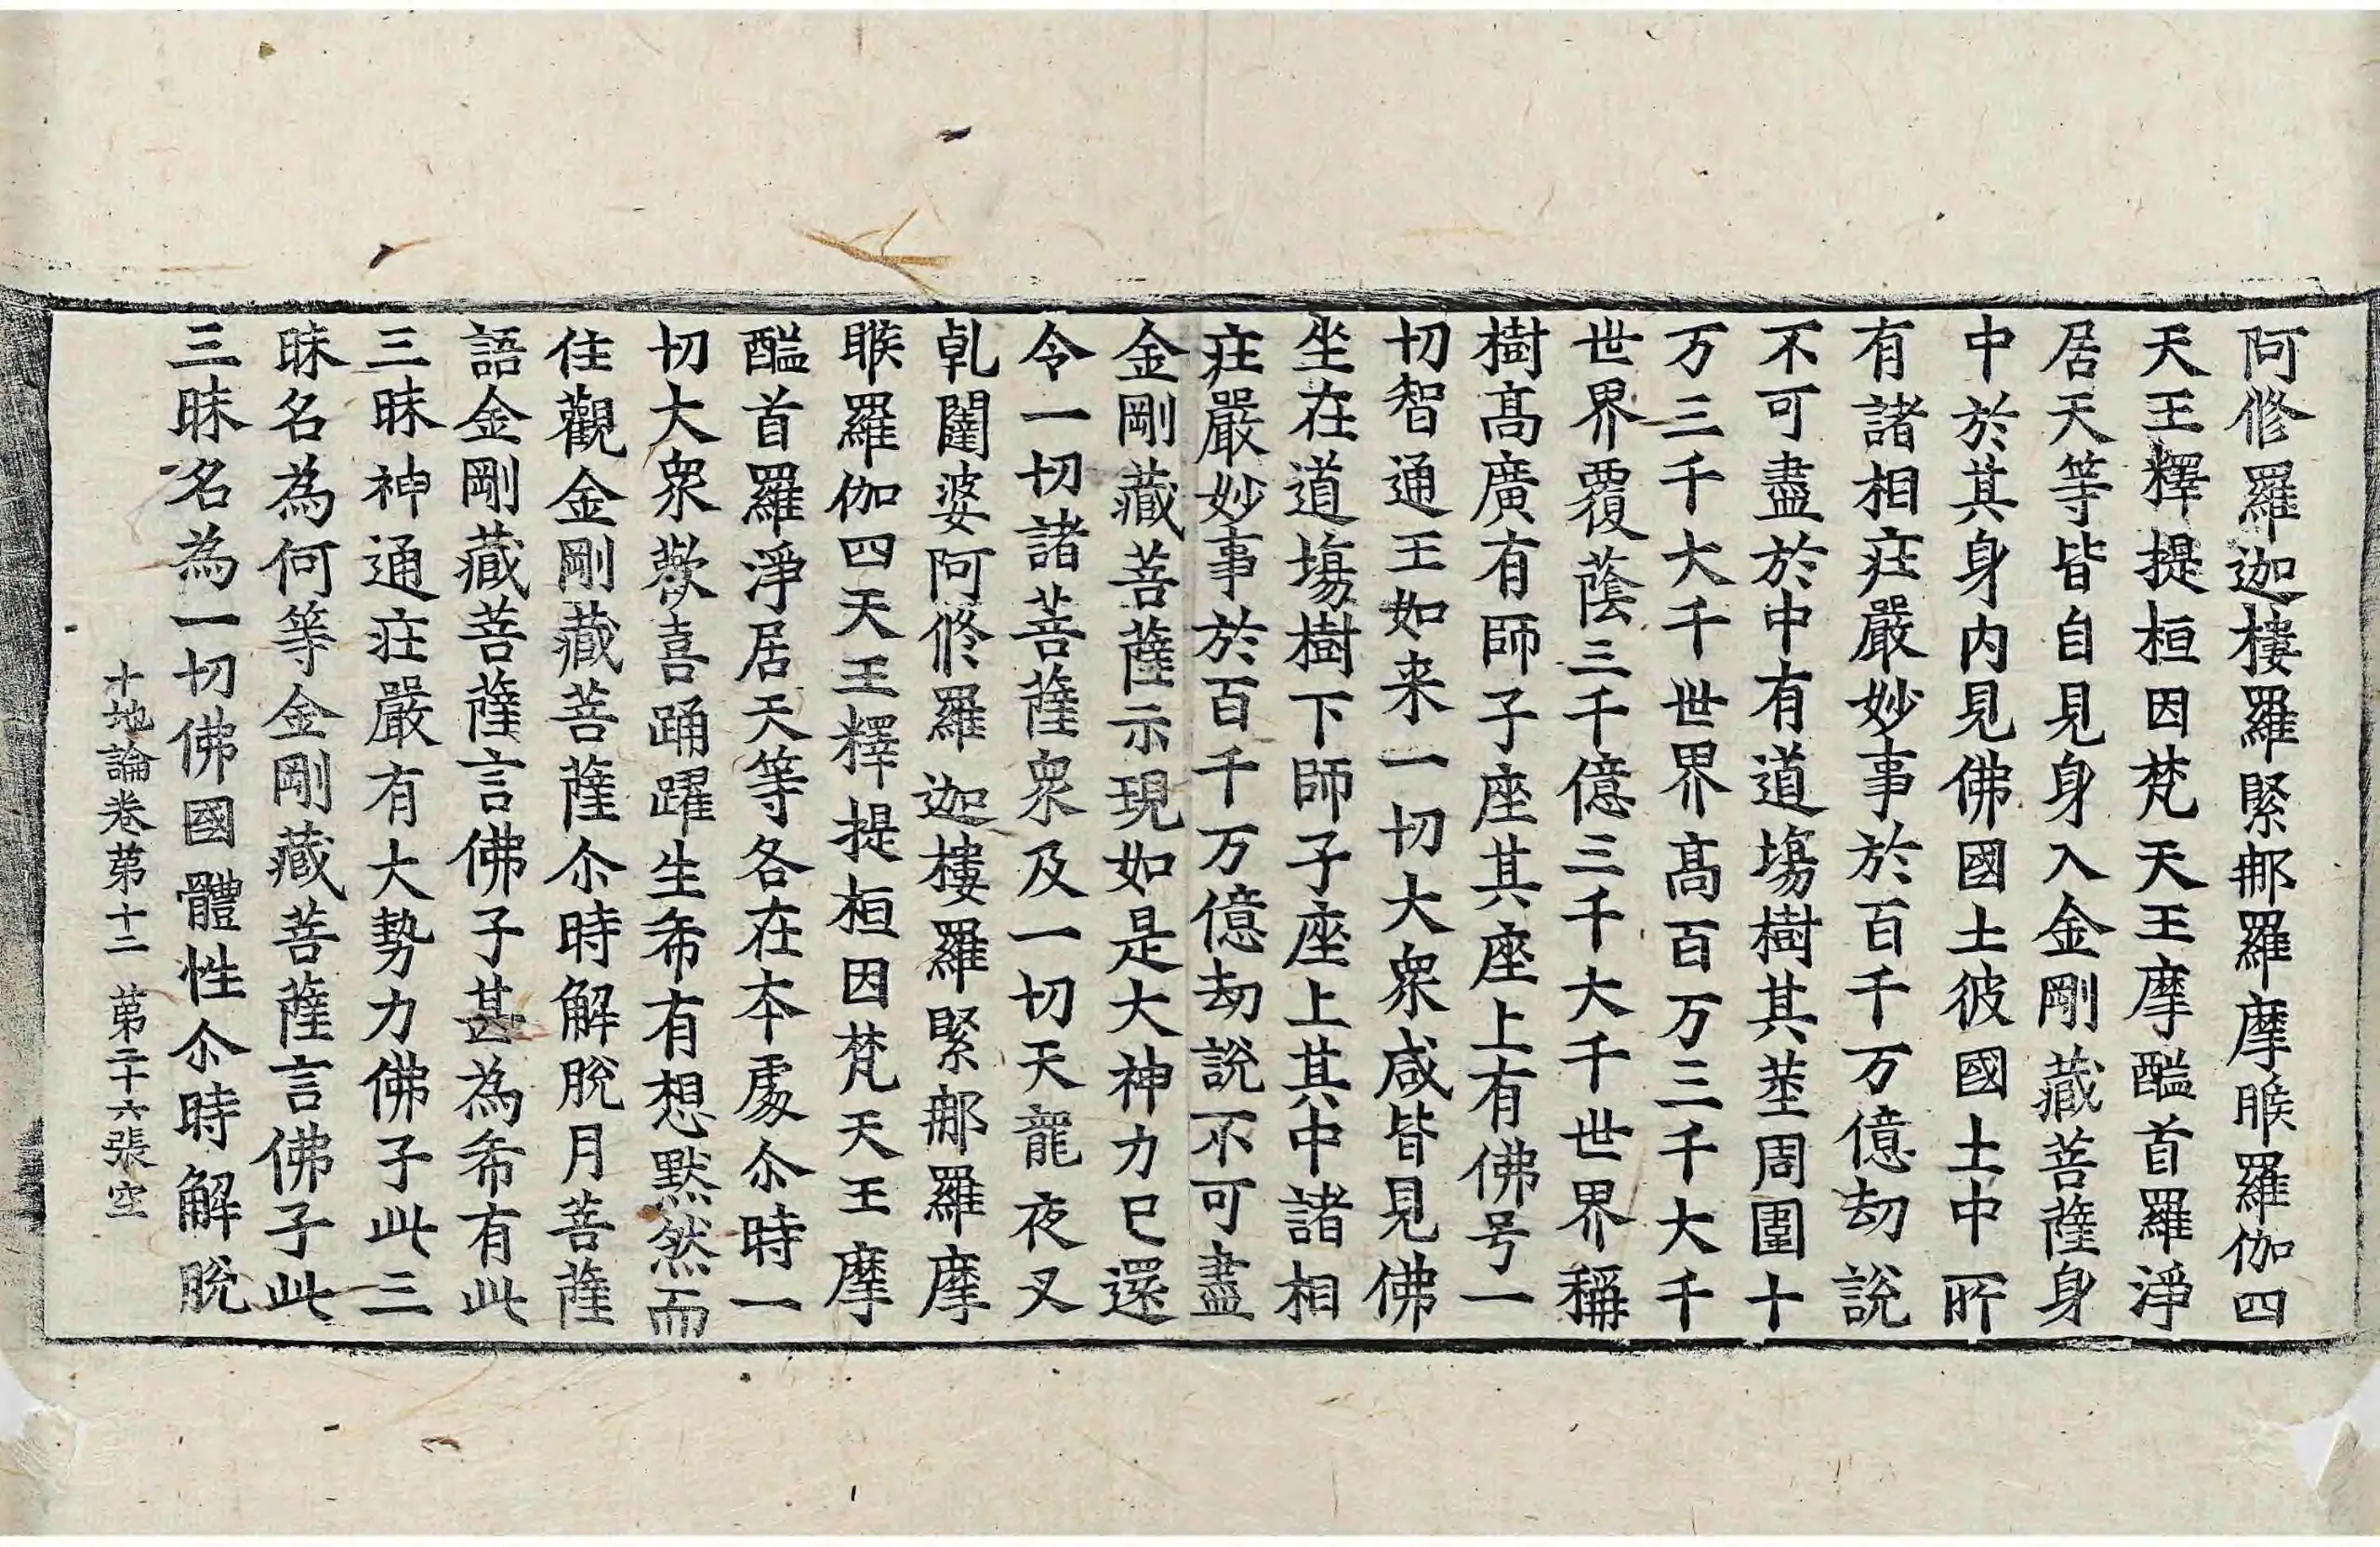 阿修羅迦樓羅緊那羅摩睺羅伽四
天王釋提桓因梵天王摩醯首羅淨
居天等皆自見身入金剛藏菩薩身
中於其身内見佛國土彼國土中所
有諸相疘嚴妙事於百千万億劫說
不可盡於中有道塲樹其莖周圍十
万三千大千世界髙百万三千大千
世界覆蔭三千億三千大千世界稱
樹髙廣有師子座其座上有佛号一
切智通王如来一切大衆咸皆見佛
坐在道塲樹下師子座上其中諸相
疘嚴妙事於百千万億劫說不可盡
金剛藏菩薩示現如是大神力已還
令一切諸菩薩衆及一切天龍夜叉
乹闥婆阿修羅迦樓羅緊那羅摩
睺羅伽四天王釋提桓因梵天王摩
醯首羅淨居天等各在本處尒時一
切大衆歡喜踊躍生希有想默然而
住觀金剛藏菩薩尒時解脫月菩薩
語金剛藏菩薩言佛子甚為希有此
三昧神通疘嚴有大勢力佛子此三
昧名為何等金剛藏菩薩言佛子此
三昧名為一切佛國體性尒時解脫
十地論卷第十二 第二十六張 空